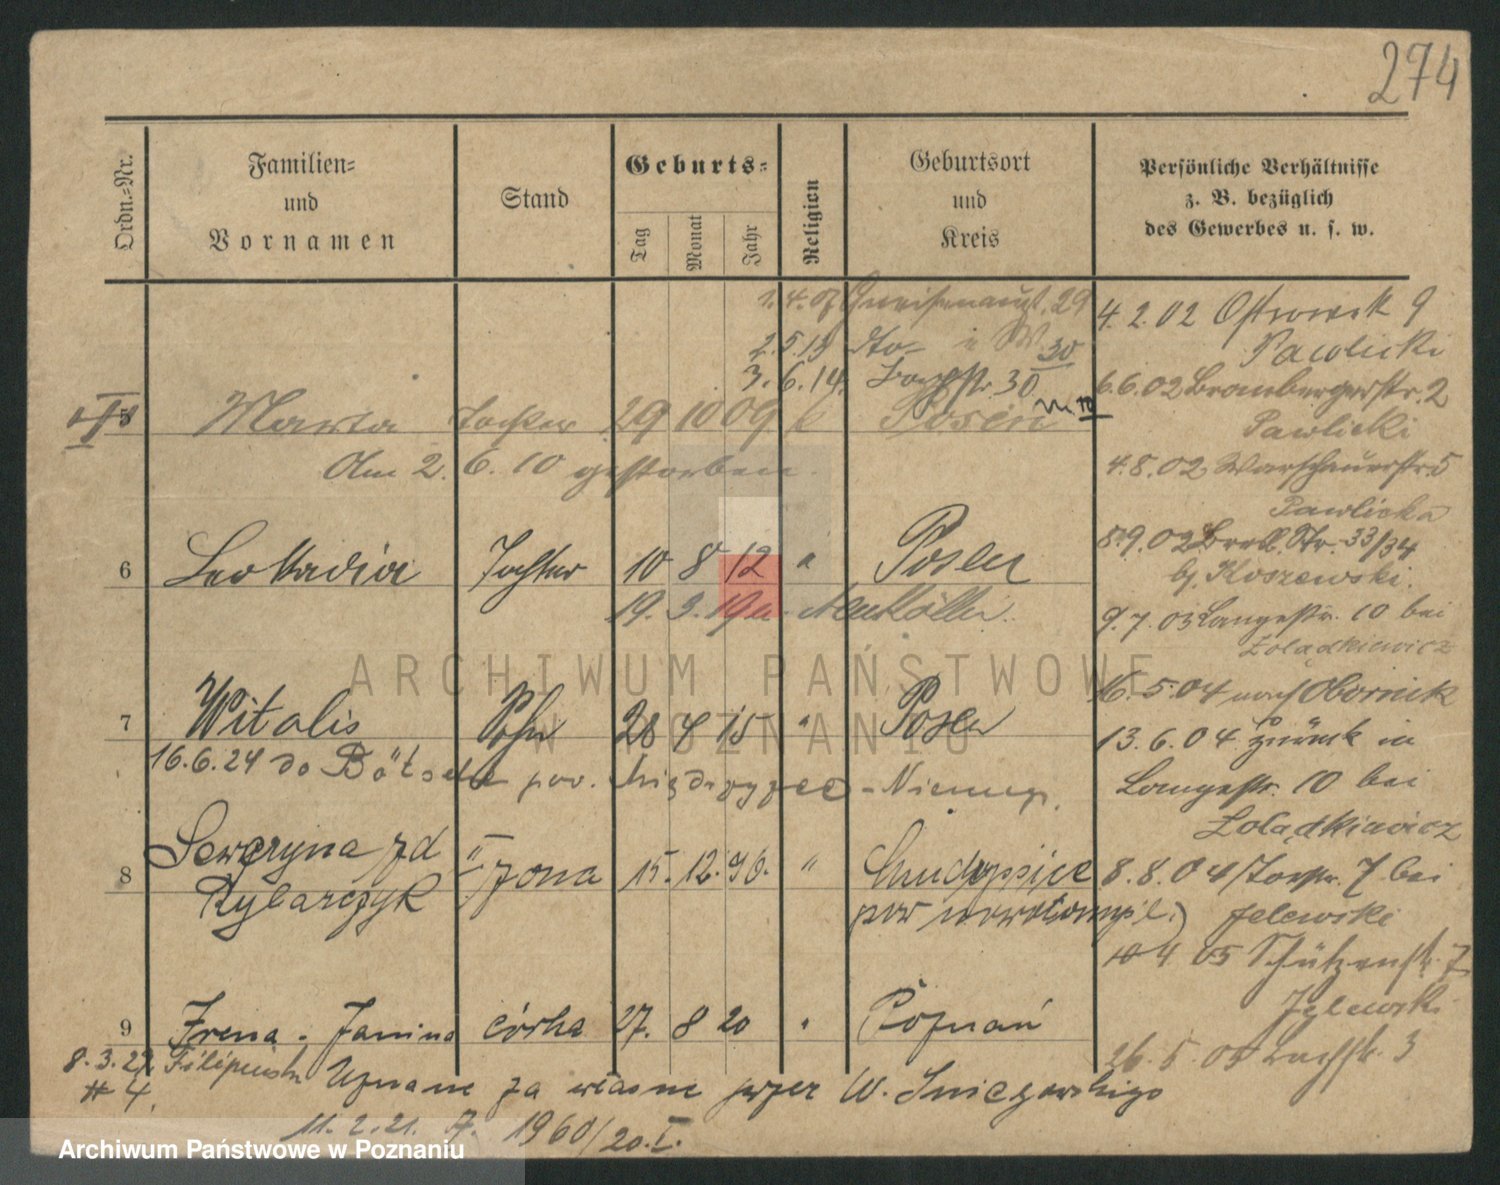 274
Ordn.=Nr.
Familien=
und
Vornamen
Stand
Geburts=
Tag
Monat
Jahr
Religion
Geburtsort
und
Kreis
Persönliche Verhältnisse
z. B. bezüglich
des Gewerbes u. s. w.
1.4.07 Gneisenaustr. 29
2.5.13 dto 30
3.6.14 30
5 Marta Tochter 29 10 09 k Posen
Am 2. 6. 10 gestorben
6 Leokadia Tochter 10 8 12 " Posen
19. 3. 19 n. Neukölln.
7 Witalis Sohn 28 4 15 " Posen
16.6.24 do Bötsche pow. Międzyrzecz - Niemcy.
8 Seweryna zd II żona 15. 12. 96. "
Rybarczyk pow nowotomysl.)
9 Irena - Janina córka 27. 8 20 " Poznań
8.3.22 Filipińska Uznane za własne przez W. Snieżewskiego
# 4.
11.2.21. A. 1960/20.I.
4.2.02 Ostrowek 9
Pawlicki
6.6.02 Brombergerstr. 2
Pawlicki
4.8.02 Warschauerstr. 5
Pawlicka
8.9.02 Bresl. Str. 33/34
bj. Koszewski.
9.7.03 Langestr. 10 bei
Żolądkiewicz
16.5.04 nach Obornik
13.6.04 zurück in
Langestr. 10 bei
Żolądkiewicz
8.8.04 7 bei
Jelewski
4 05 Schützenstr. 7
Jelewski
26.5.05 3
ARCHIWUM PAŃSTWOWE
W POZNANIU
Archiwum Państwowe w Poznaniu